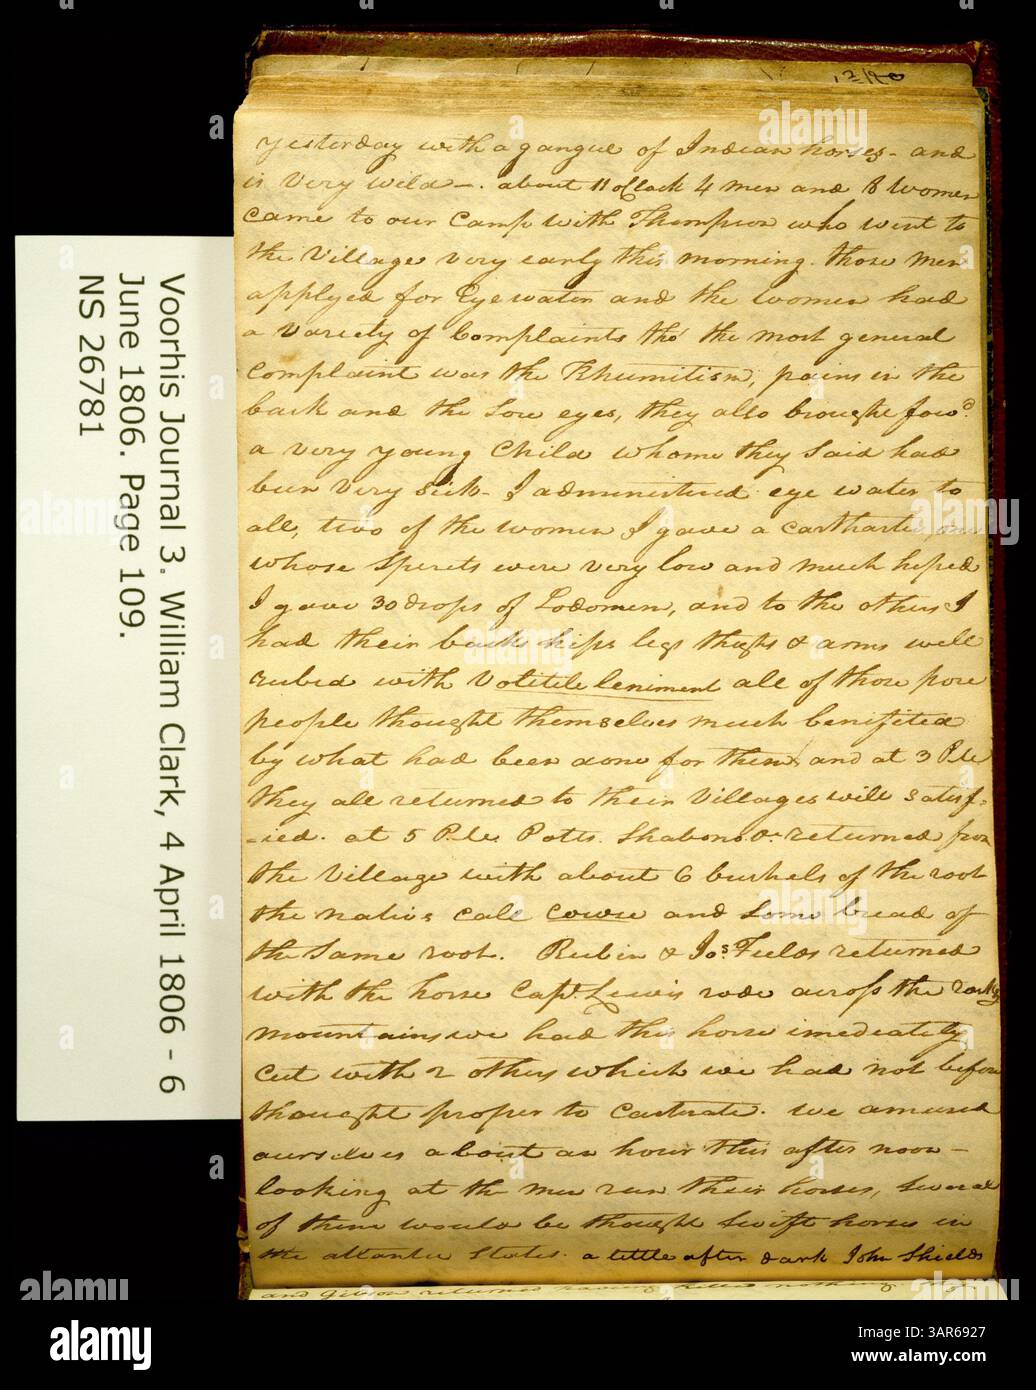 yesterday with a gangue of Indian horses - and
is very wild -. about 11 oClock 4 men and 8 women
came to our Camp with Thompson who went to
the Village very early this morning. those men
applyed for Eye water and the women had
a variety of Complaints tho' the most general
Complaint was the Rhumitism, pains in the
back and the Sore eyes, they also brought fowd.
a very young Child whome they Said had
been very Sick - I administered eye water to
all, two of the women I gave a carthartic, one
whose Sperits were very low and much hiped
I gave 30 drops of Lodomem, and to the others I
had their backs hips legs thighs & arms well
rubed with Volitile leniment all of those pore
people thought themselves much benifited
by what had been done for them, and at 3 P.M.
they all returned to their Villages well Satisf=
=ied. at 5 P.M. Potts. Shabono &c. returned from
the Village with about 6 bushels of the root
the nativs call cowse and Some bread of
the Same root. Rubin & Jos. Fields returned
with the horse Capt. Lewis rode across the rocky
mountains we had this horse imediately
Cut with 2 others which we had not before
thought proper to Castrate. we amused
ourselves about an hour this after noon -
looking at the men run their horses, Several
of them would be thought Swift horses in
the atlantic States. a little after dark John Shields
and Gibson returned haveing killed nothing.
Voorhis Journal 3. William Clark, 4 April 1806 - 6
June 1806. Page 109.
NS 26781
alamy
a
Image ID: 3AR6927
www.alamy.com